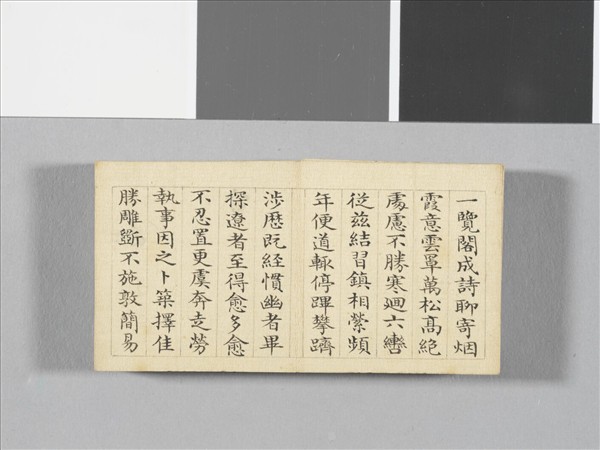 一覽閣成詩聊寄烟
霞意雲罩萬松髙絶
處慮不勝寒迴六轡
從兹結習鎮相縈頻
年便道輒停蹕攀躋
涉歴既経慣幽者畢
探遼者至得愈多愈
不忍置更虞奔走勞
執事因之卜築擇佳
勝雕斵不施敦簡易